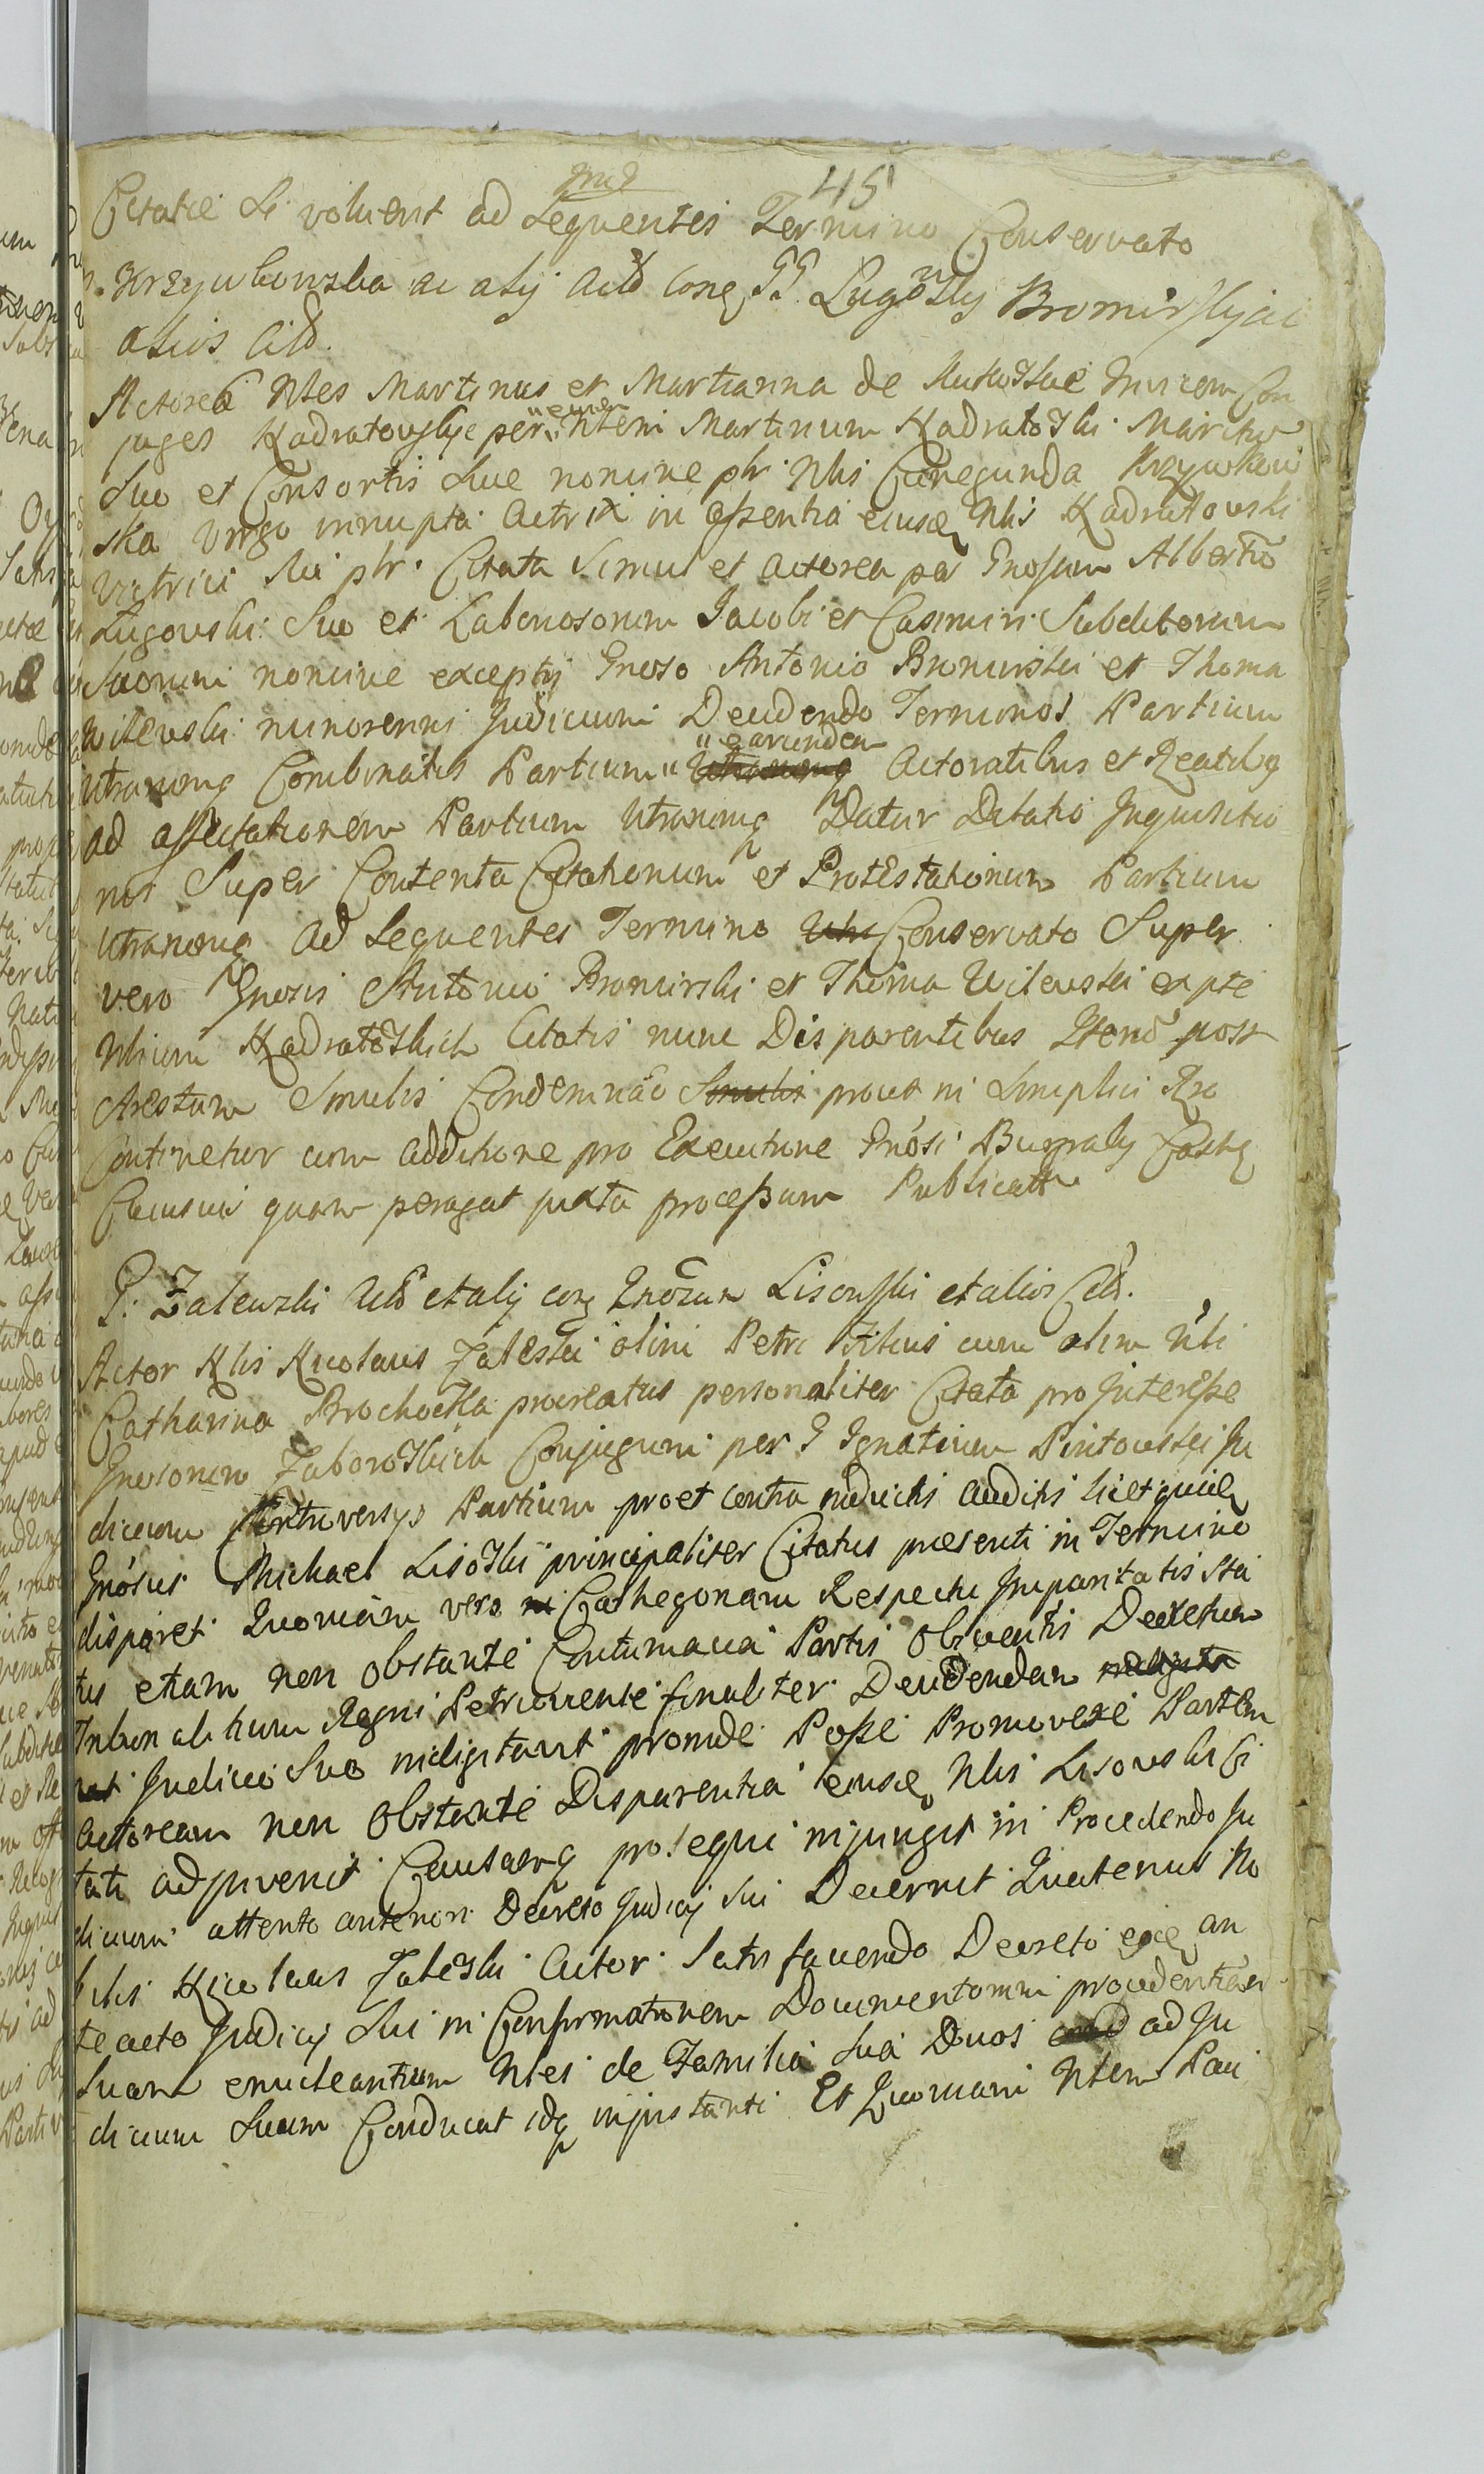 45
Citatae si voluerit ad sequentes Termino Conservato
Krzywkowska ac alij Actt cong GG Lugowskj Bromirskj ac
alios Citt.
Actorea Nbles Martinus et Marianna de Rutkowskie Invicem Con
juges Kadratowskje per "eundem" Nblem Martinum Kadratowski Maritum
suo et Consortis suae nomine plr Nblis Cunegunda Krzywkow
ska virgo innupta Actrix in assentia eiusdem Nblis Kadratowski
Vitrici sui plr. Citata simul et actorea per Gnosum Albertum
Lugowski suo et Laboriosorum Jacobi et Casimiri Subditorum
suorum nomine exceptis Gnoso Antonio Bromirski et Thoma
Wilewski minorenni Judicium Decidendo Terminos Partium
utrarumq Combinatis Partium "earundem" utrarumq Actoratibus et Reatibq
ad affectationem Partium utrarumq Datur Dilatio Inquisitio
nis Super Contenta Citationum et Protestationum Partium
utrarumq ad sequentes Termino utr Conservato Super
vero Gnosis Antonio Bromirski et Thoma Wilewski ex pte
Nblium Kadratowskich Citatis nunc Disparentibus Itend post
Arestum Simulis Condemnao Simulis prout in simplici Rro
Continetur cum additione pro Executione Gnosi Burgrabj Castrq
Ciecusuis quam peragat juxta processum Publicatt
G. Zalewski Actt et alij cong Gnosum Lisowski et alios Citt.
Actor Nblis Nicolaus Zaleski olim Petri Filius cum olim Nbli
Catharina Brochocka procreatus personaliter Citata pro Interesse
Gnosorum Zaborowskich Conjugum per G Ignatium Pintowski Ju
dicium Controversys Partium pro et contra inductis auditis licet quidem
Gnosus Michael Lisowski principaliter Citatus praesenti in Termino
disparet Quoniam vero in Cathegoriam Respectu Imparitatis sta
tus etiam non obstante Contumacia Partis obloventis Decretum
Tribunalitium Regni Petricoviense finaliter Decidendam indigita
rat Judicio suo indigitavit proinde Posse Promovere Partem
actoream non obstante Disparentia eiusdem Nblis Lisowski Ci
tati adjnvenit Causamq prosequi injungit in Procedendo Ju
dicium attento anteriori Decreto Judicij sui Decernit Quatenus No
bilis Nicolaus Zaleski Actor satis faciendo Decreto eidem an
teacto Judicij sui in Confirmationem Documentorum procedentiam
suam enucleantium Nbles de Familia sua Duos coad ad Ju
dicium suum Conducat idq injnstanti Et Quoniam Nblem Pau